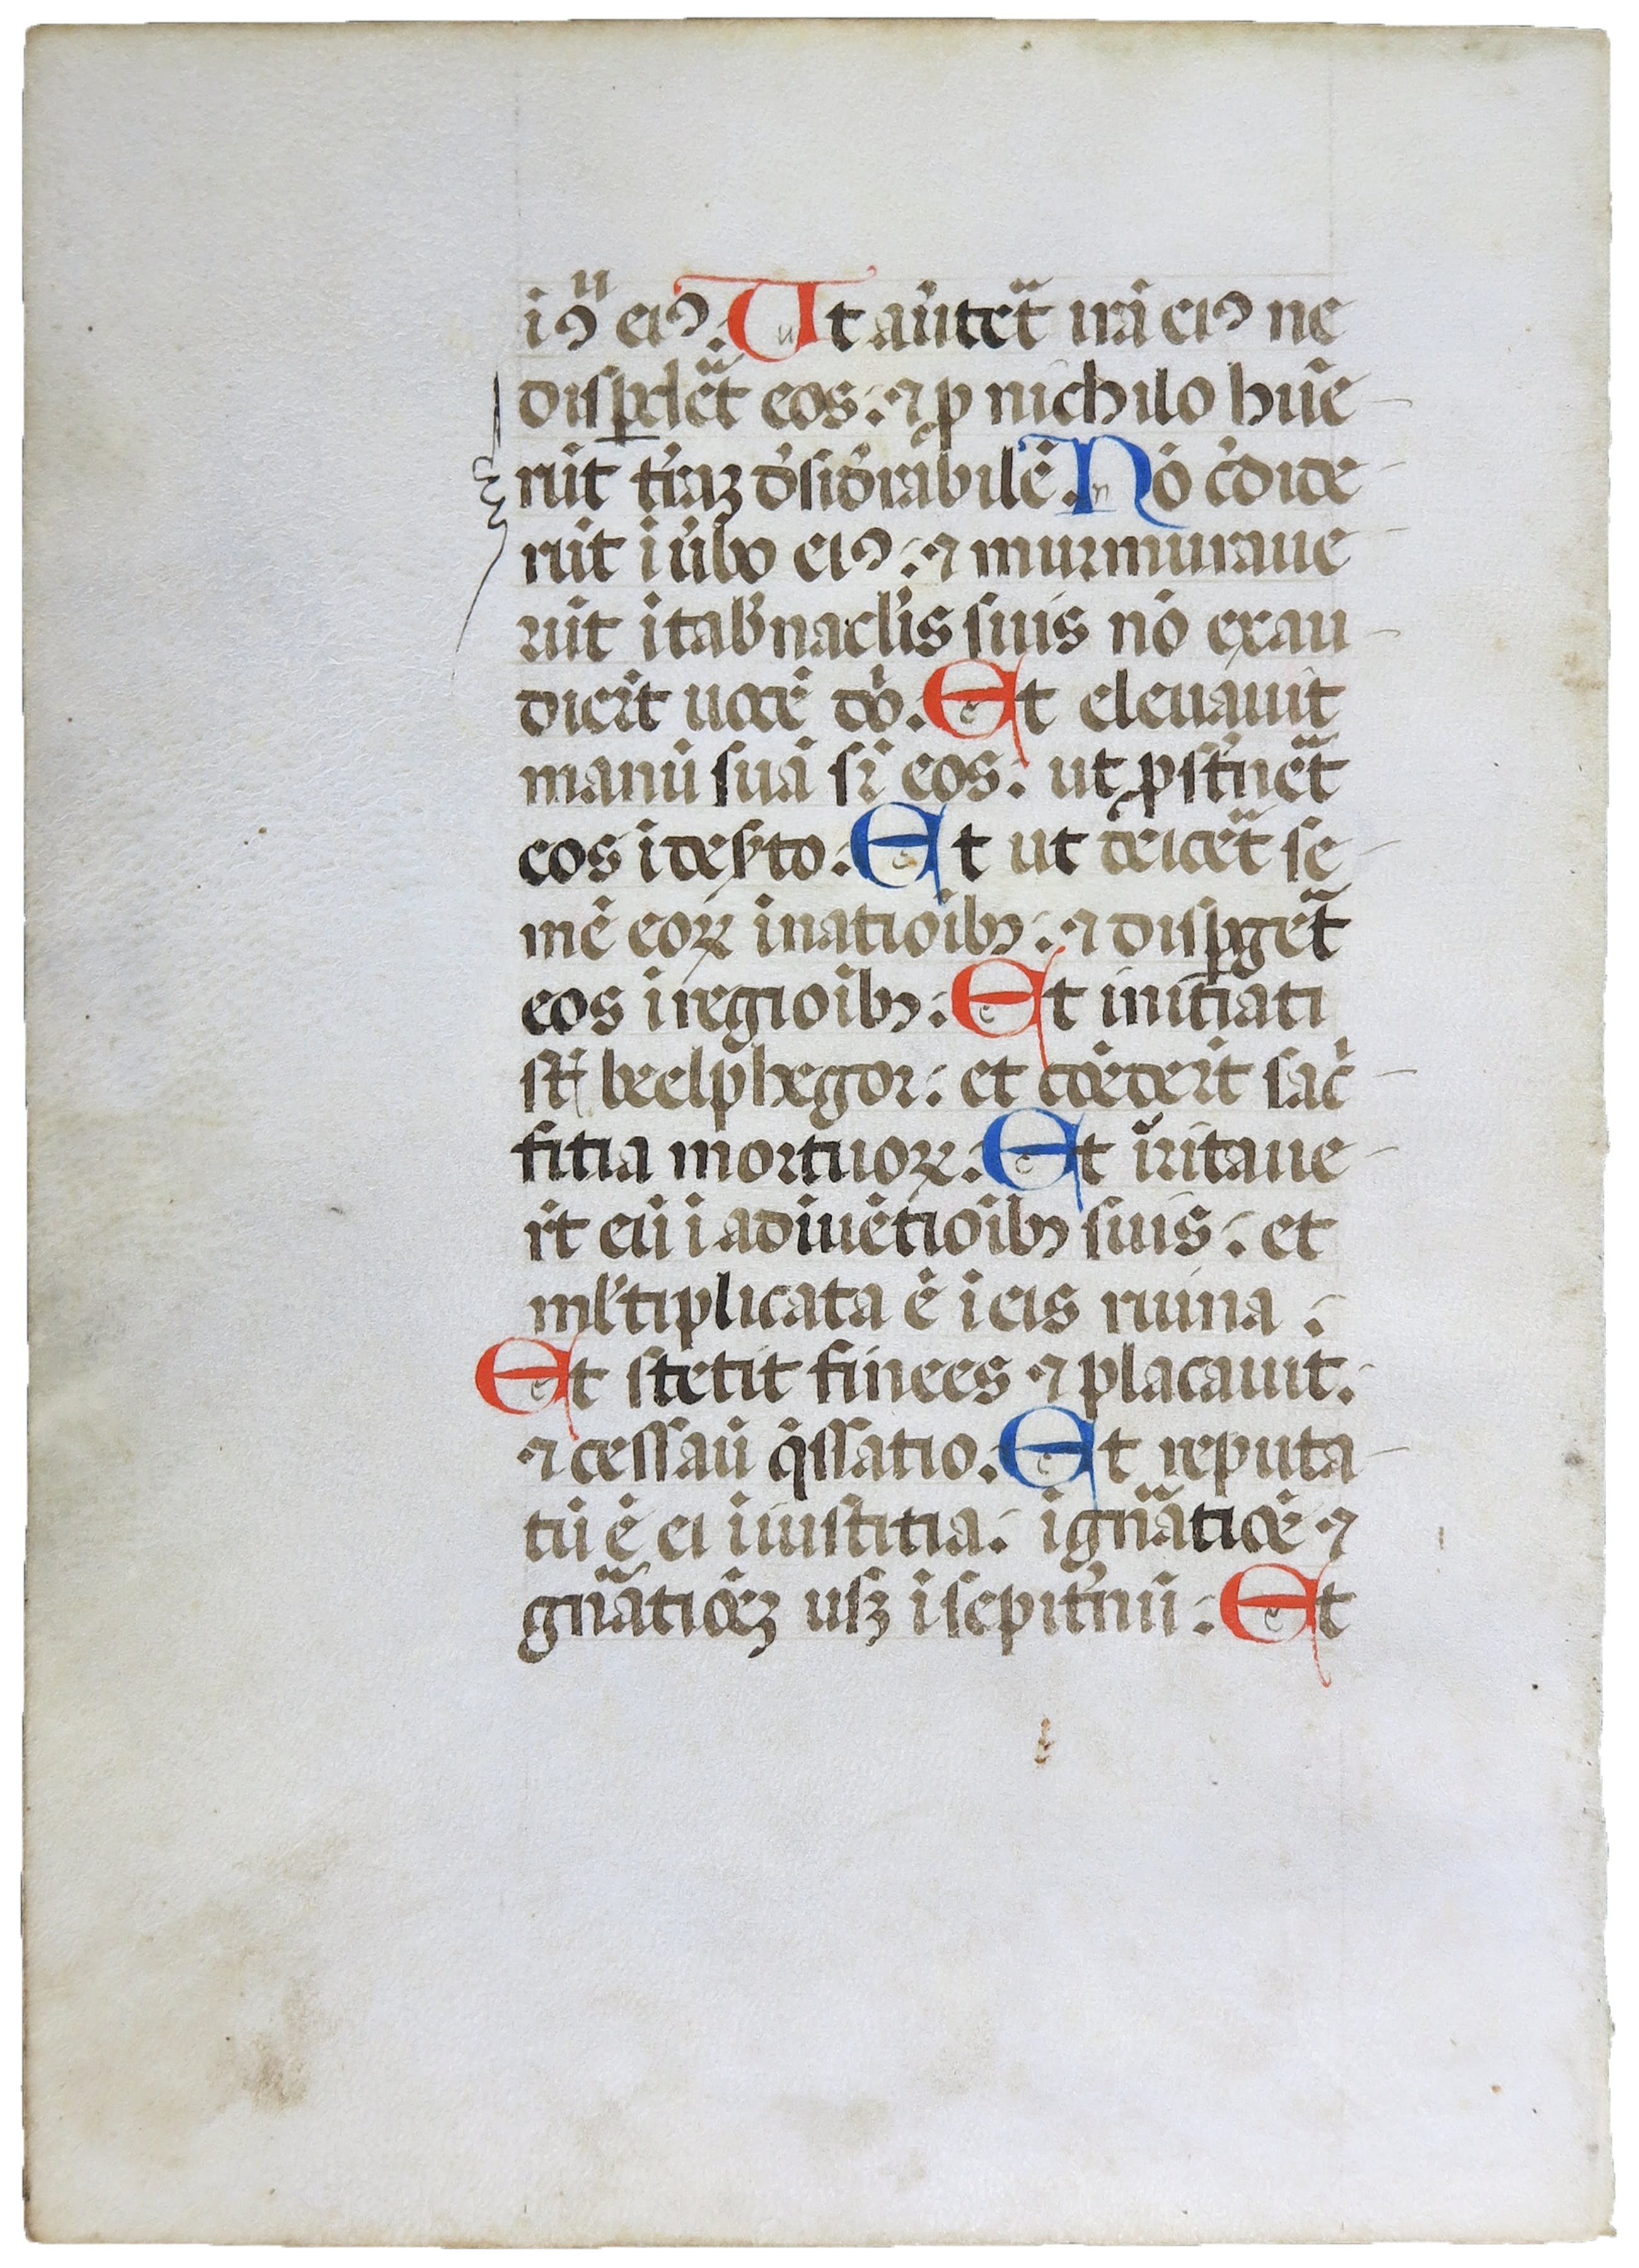 iↄ̈ eiꝰ: Ut au̇tet̄ ira̅ eiꝰ ne
disꝑdet̄ eos: ⁊ ꝓ nichilo hu̅e
ru̅t t̓raꝫ d̓sid̓rabile̅. No̅ c̓dide
ru̅t i̅ u̓bo eiꝰ: ⁊ murmuraue
ru̅t i̅ tab̓nacl̓is suis no̅ exau
dier̅t uoce̅ dn̅i. Et eleuauit
manu̅ sua̅ sr̅ eos: ut ꝓst̓net̄
eos i̅ des̓to: Et ut deicet̄ se
me̅ eoꝝ i̅ natio̅ibꝰ: ⁊ disꝑget̄
eos i̅ regio̅ibꝰ: Et initiati
st̅ beelphegor: et co̅eder̅t sac̓
fitia mortuoꝝ: Et irritaue
r̅t eu̅ i̅ adiue̅tio̅ibꝰ suis: et
ml̓tiplicata e̅ i̅ eis ruina:
Et stetit finees ⁊ placauit:
⁊ cessau̅ q̅ssatio. Et reputa
tu̅ e̅ ei i̅ iustitia: i̅ gn̅atio̅e ⁊
gn̅atio̅eꝫ usꝫ i̅ sepit̓nu̅: Et